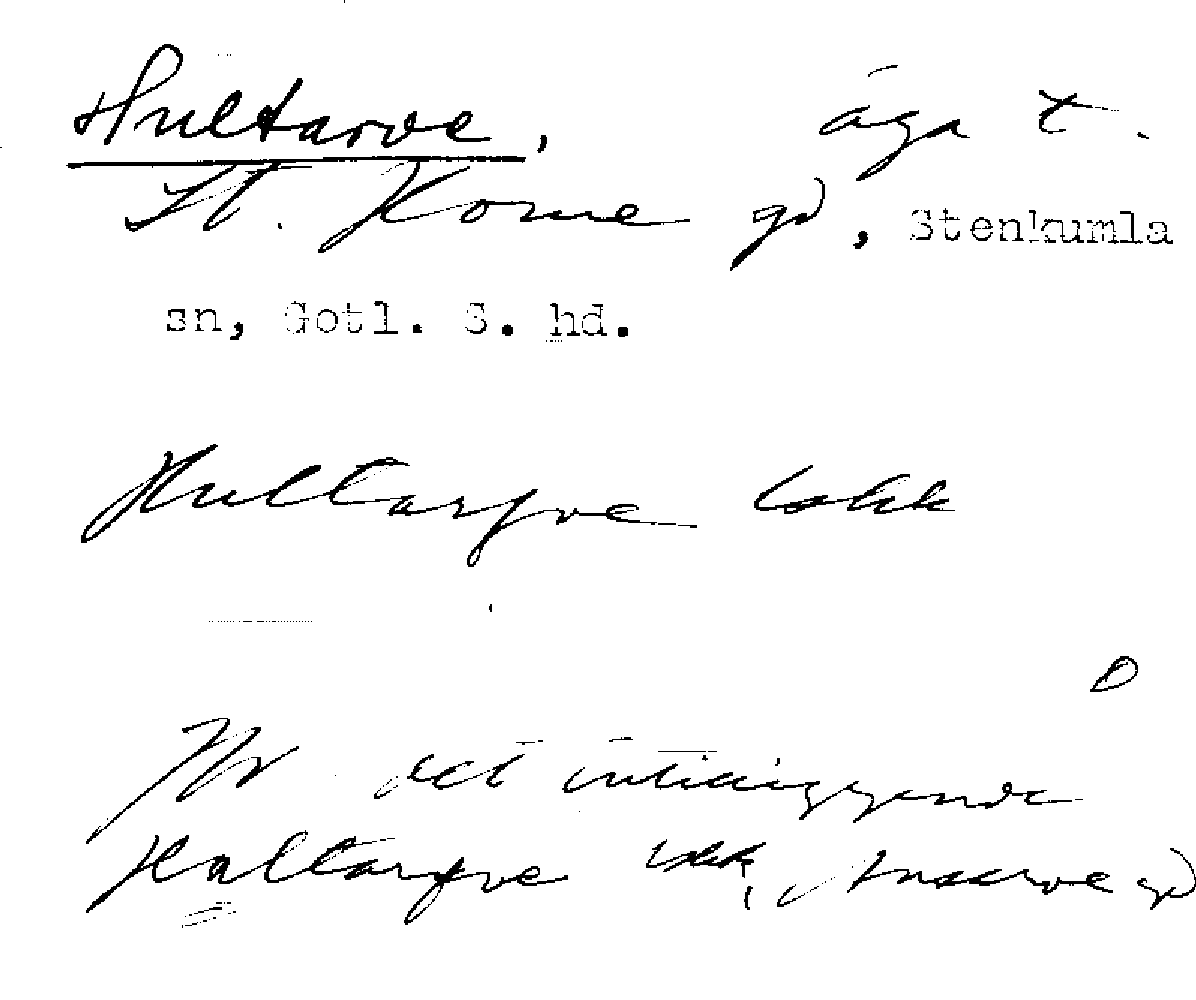 Hultarve, äga t.
St. Home gd, Stenkumla
sn, Gotl. S. hd.
Hultarfve lokk
Jfr det intilliggende
Haltarfve lokk, gd